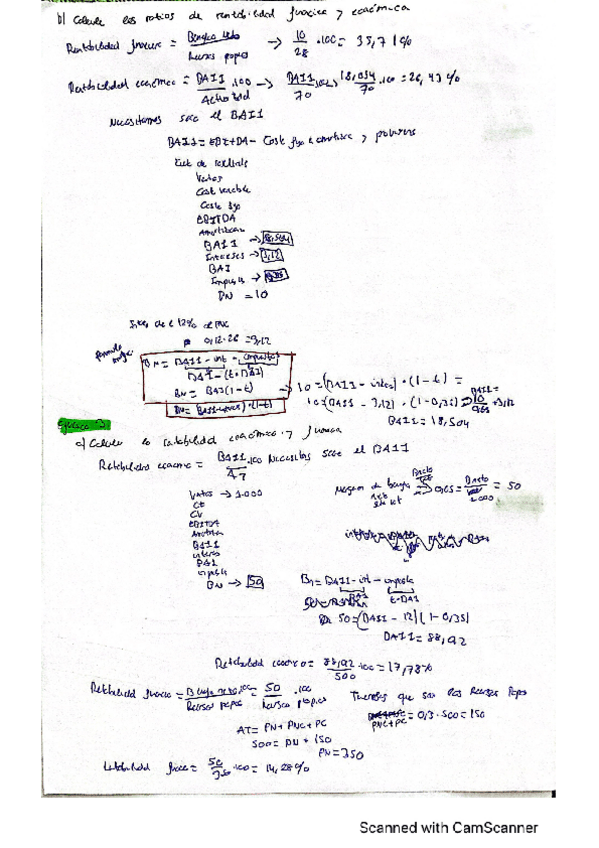 b) Calcule los ratios de rentabilidad financiera y económica
Rentabilidad financiera = Beneficio neto / Recursos propios → 10/28 · 100 = 35,71%
Rentabilidad económica = BAII / Activo total · 100 → BAII/70 · 100, 18,504/70 · 100 = 26,43%
Necesitamos saber el BAII
BAII = EBITDA - Coste fijo amortizac y
Cuenta de resultados
Ventas
Coste variable
Coste fijo
EBITDA
Amortización
BAII → 18,504
Intereses → 3,12
BAI
Impuesto →
BN = 10
12% al PNC
0,12 · 26 = 3,12
BN = BAII - int - impuesto
BAI - (t · BAI)
BN = BAI (1 - t)
BN = (BAII - intereses) · (1 - t)
→ 10 = (BAII - intes) · (1 - t) =
10 = (BAII - 3,12) · (1 - 0,35) → 10/0,65 + 3,12
BAII = 18,504
Ejercicio 3
a) Calcule la rentabilidad económica y financiera
Rentabilidad económica = BAII/AT · 100 Necesitamos saber el BAII
Ventas → 1.000
CF
CV
EBITDA
Amortizac
BAII
intereses
BAI
impuesto
BN → 50
Margen de = 50
BN = BAII - int - impuesto
BAI t · BAI
50 = (BAII - 12) (1 - 0,35)
BAII = 88,92
Rentabilidad económica = 88,92/500 · 100 = 17,78%
Rentabilidad financiera = Beneficio neto / Recursos propios · 100 = 50 / Recursos propios · 100
Tenemos que saber los Recursos Propios
PNC + PC = 0,3 · 500 = 150
AT = PN + PNC + PC
500 = PN + 150
PN = 350
Rentabilidad financ = 50/350 · 100 = 14,28%
Scanned with CamScanner